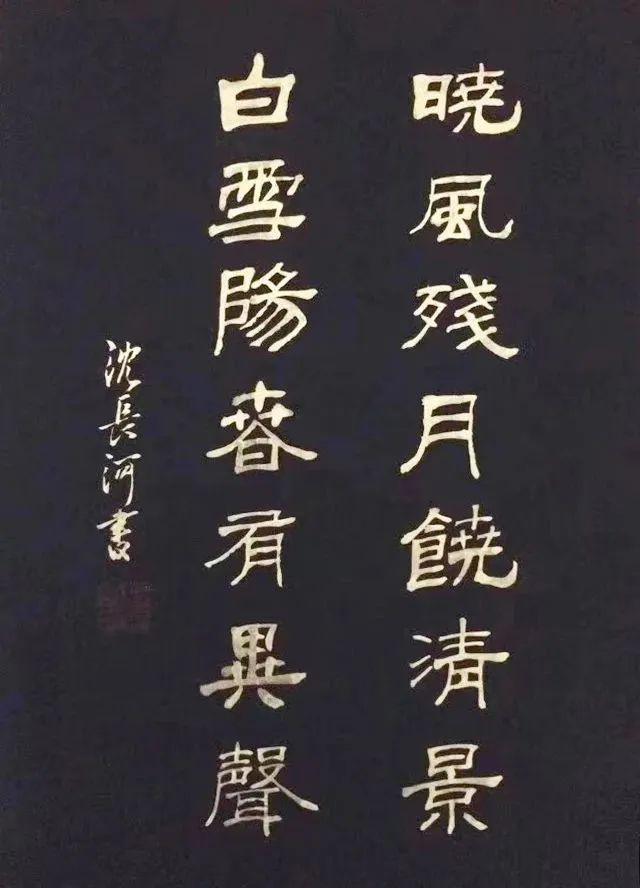 曉風殘月饒清景
白雪陽春有異聲
沈長河書